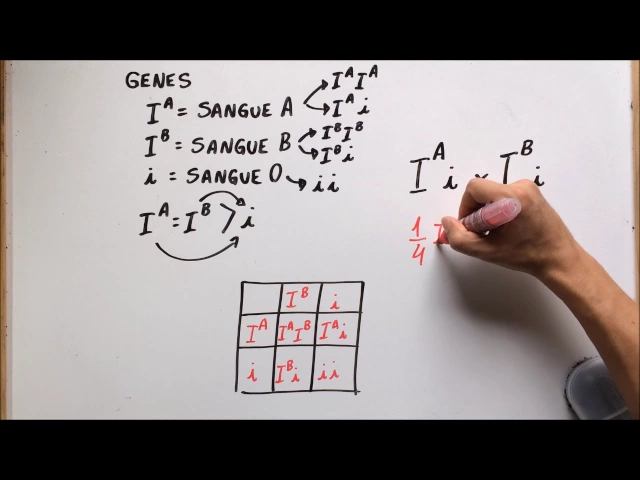 GENES
I^A = SANGUE A → I^A I^A
→ I^A i
I^B = SANGUE B → I^B I^B
→ I^B i
i = SANGUE O → ii
I^A = I^B > i
I^A i × I^B i
1/4 I
I^B i
I^A I^A I^B I^A i
i I^B i ii